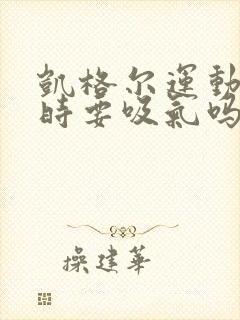 凯格尔運動
時要吸氣嗎
操建華